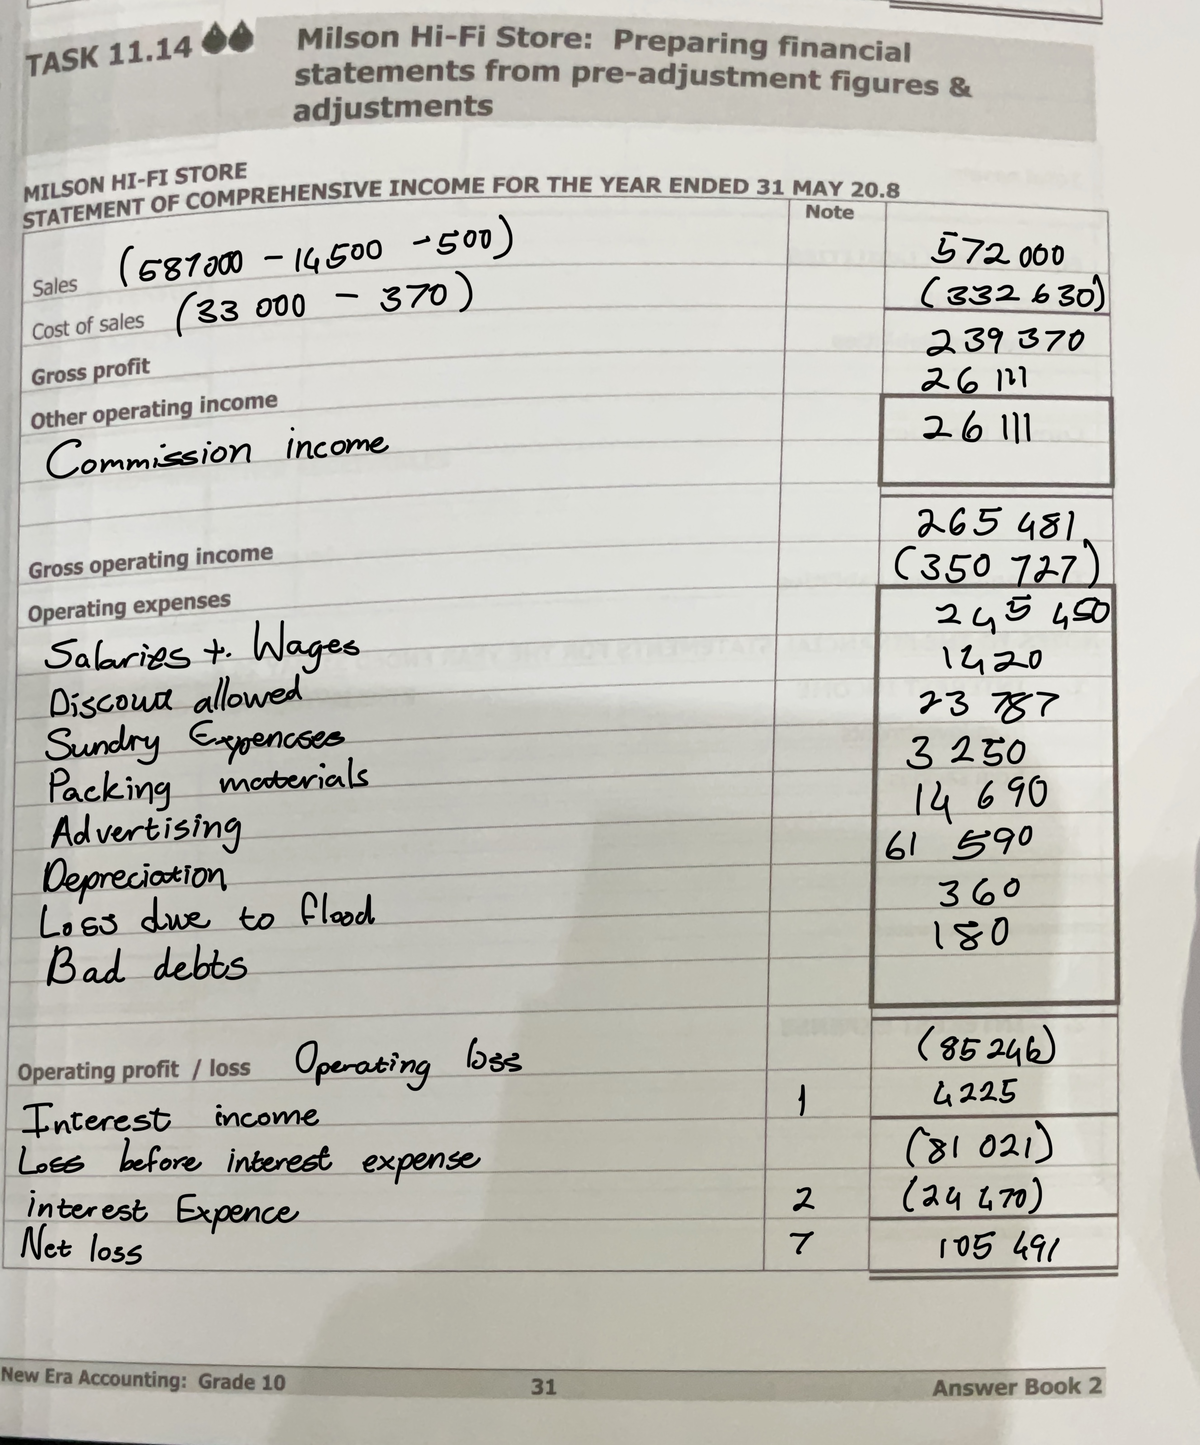 TASK 11.14
Milson Hi-Fi Store: Preparing financial
statements from pre-adjustment figures &
adjustments
MILSON HI-FI STORE
STATEMENT OF COMPREHENSIVE INCOME FOR THE YEAR ENDED 31 MAY 20.8
Note
Sales (587000 - 14500 - 500) 572 000
Cost of sales (33 000 - 370) (332 630)
Gross profit 239 370
Other operating income 26 111
Commission income 26 111
Gross operating income 265 481
Operating expenses (350 727)
Salaries + Wages 245 450
Discount allowed 1420
Sundry Expencses 23 787
Packing materials 3 250
Advertising 14 690
Depreciation 61 590
Loss due to flood 360
Bad debts 180
Operating profit / loss Operating loss (85 246)
Interest income 1 4225
Loss before interest expense (81 021)
interest Expence 2 (24 470)
Net loss 7 105 491
New Era Accounting: Grade 10 31 Answer Book 2